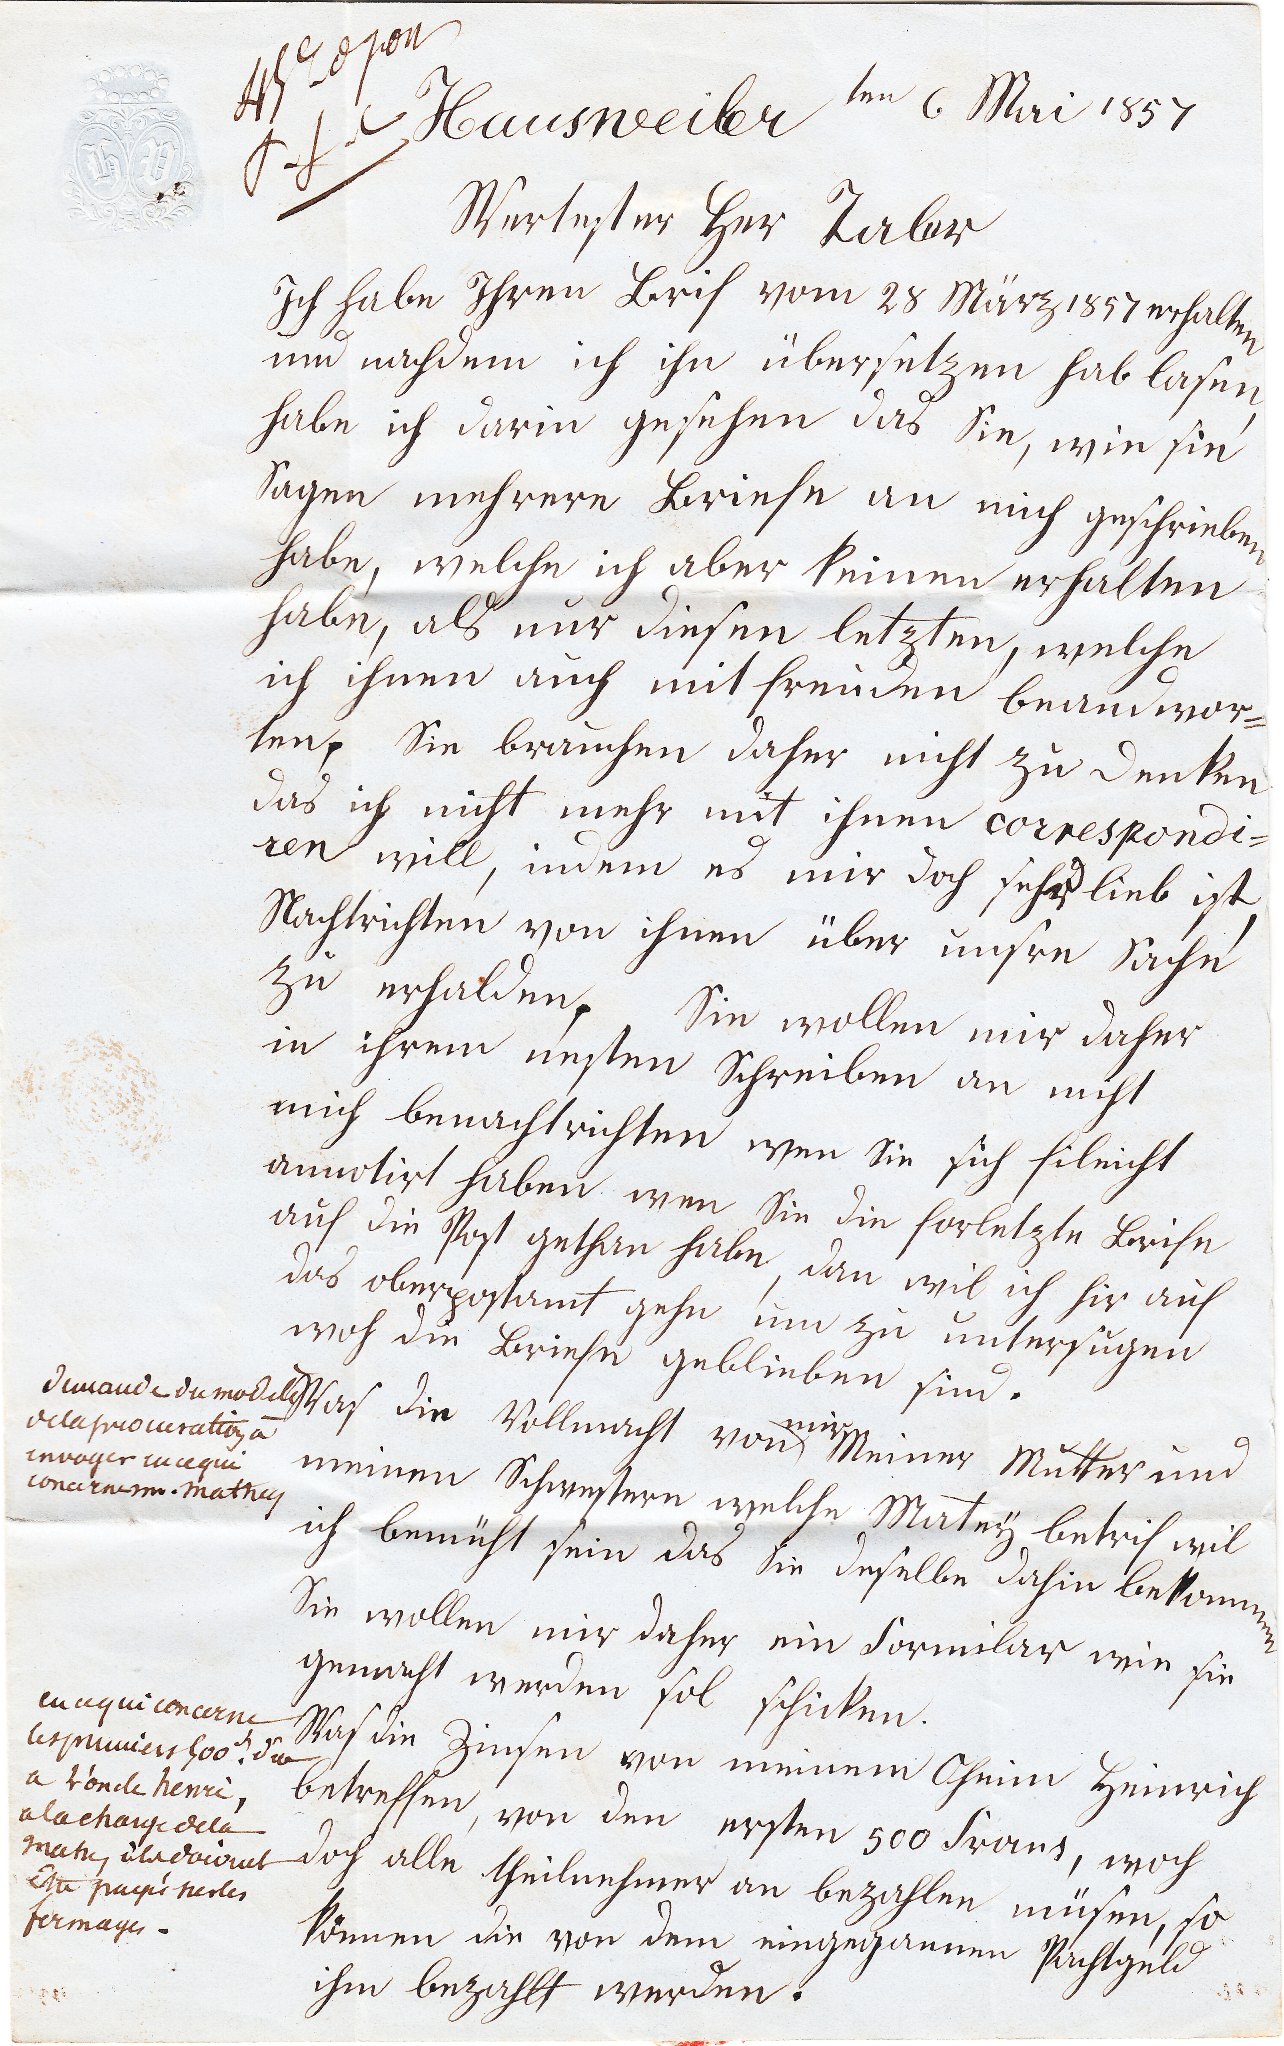 Hausweiler ten 6 Mai 1857
Wertester Her Tabor
Ich habe Ihren Brif vom 28 März 1857 erhalten
und nachdem ich ihn übersetzen hab lasen,
habe ich darin gesehen das Sie, wie sie
Sagen mehrere Briefe an mich geschrieben
habe, welche ich aber keinen erhalten
habe, als nur diesen letzten, welche
ich ihnen auch mit freuden beandwor=
ten. Sie brauchen daher nicht zu denken
das ich nicht mehr mit ihnen correspondi=
ren will, indem es mir doch sehr lieb ist,
Nachtrichten von ihnen über unsre Sache
zu erhalden. Sie wollen mir daher
in ihrem nesten Schreiben an nicht
mich benachtrichten wen Sie sich fileicht
annotirt haben wen Sie die forletzte Brife
auf die Post gethan habe, dan wil ich hir auf
das oberpostamt gehn um zu untersugen
woh die Briefe geblieben sind.
Was die Vollmacht von mir Meiner Mutter und
meinen Schwestern welche Matey betrif wil
ich bemüht sein das Sie deselbe dahin bekommen
Sie wollen mir daher ein Formilar wie sie
gemacht werden sol schicken.
Was die Zinsen von meinem Oheim Heinrich
betreffen, von den ersten 500 Frans, woch
doch alle theilnehmer an bezahlen müsen, so
können die von dem eingegannen Pachtgeld
ihm bezahlt werden.
demande du modele
de la procuration à
envoyer en ce qui
concerne m. Mathey
en ce qui concerne
les premiers 500 du
a l'oncle henri,
a la charge de la
être payés sur les
fermages.